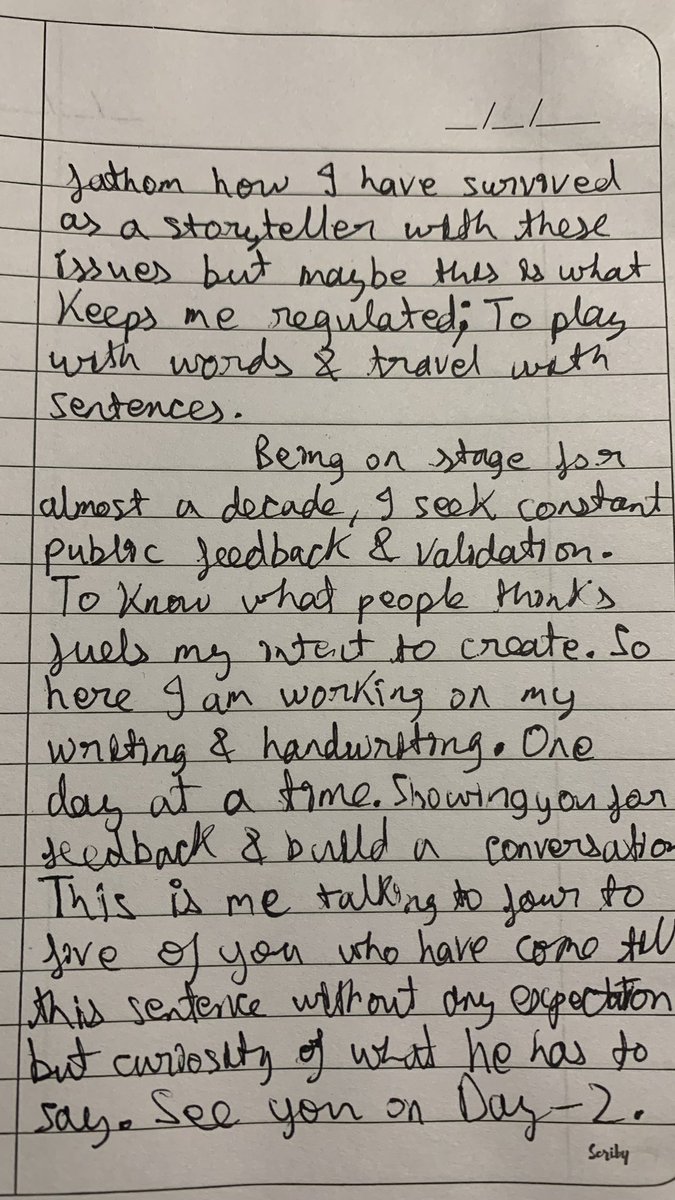 _/_/__
fathom how I have survived
as a storyteller with these
issues but maybe this is what
keeps me regulated; To play
with words & travel with
sentences.
Being on stage for
almost a decade, I seek constant
public feedback & validation.
To know what people thinks
fuels my intent to create. So
here I am working on my
writing & handwriting. One
day at a time. Showing you for
feedback & build a conversation
This is me talking to four to
five of you who have come till
this sentence without any expectation
but curiosity of what he has to
say. See you on Day-2.
Scriby